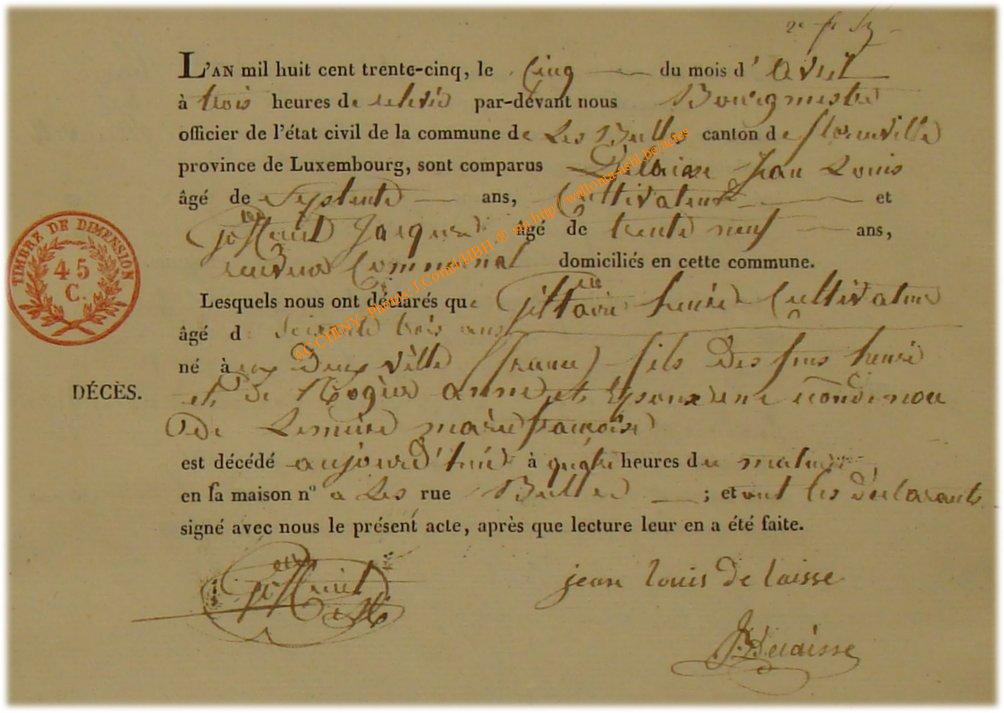 L'AN mil huit cent trente-cinq, le Cinq du mois d'avril
à trois heures de relevée par-devant nous Bourgmestre
officier de l'état civil de la commune de Les Bulles canton de florenville
province de Luxembourg, sont comparus Delaisse Jean Louis
âgé de Septente ans, Cultivateur et
Jacques âgé de trente neuf ans,
receveur Communal domiciliés en cette commune.
Lesquels nous ont déclarés que henri Cultivateur
âgé de Soixante trois ans
né à aux Deux ville (france) fils Des feus henri
DÉCÈS.
et de Rogier anne et Epoux en
De Lemaire marie francoise
est décédé aujourd'hui à quatre heures du matin
en sa maison n° a Les rue Bulles ; et ont les déclarants
signé avec nous le présent acte, après que lecture leur en a été faite.
jean louis de laisse
Delaisse
TIMBRE DE DIMENSION
45
C.